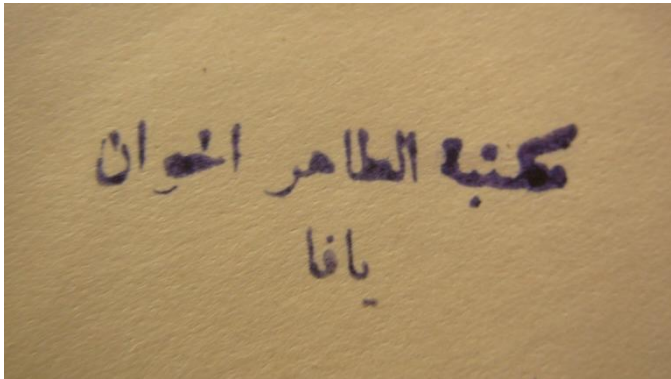 مكتبة الطاهر اخوان
يافا